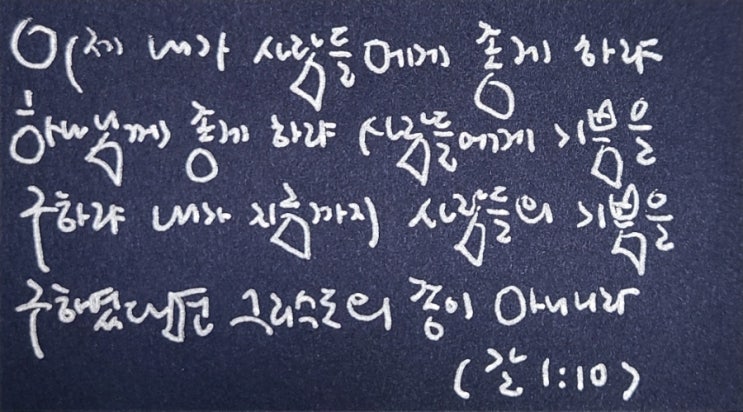 이제 내가 사람들에게 좋게 하랴
하나님께 좋게 하랴 사람들에게 기쁨을
구하랴 내가 지금까지 사람들의 기쁨을
구하였다면 그리스도의 종이 아니니라
(갈 1:10)